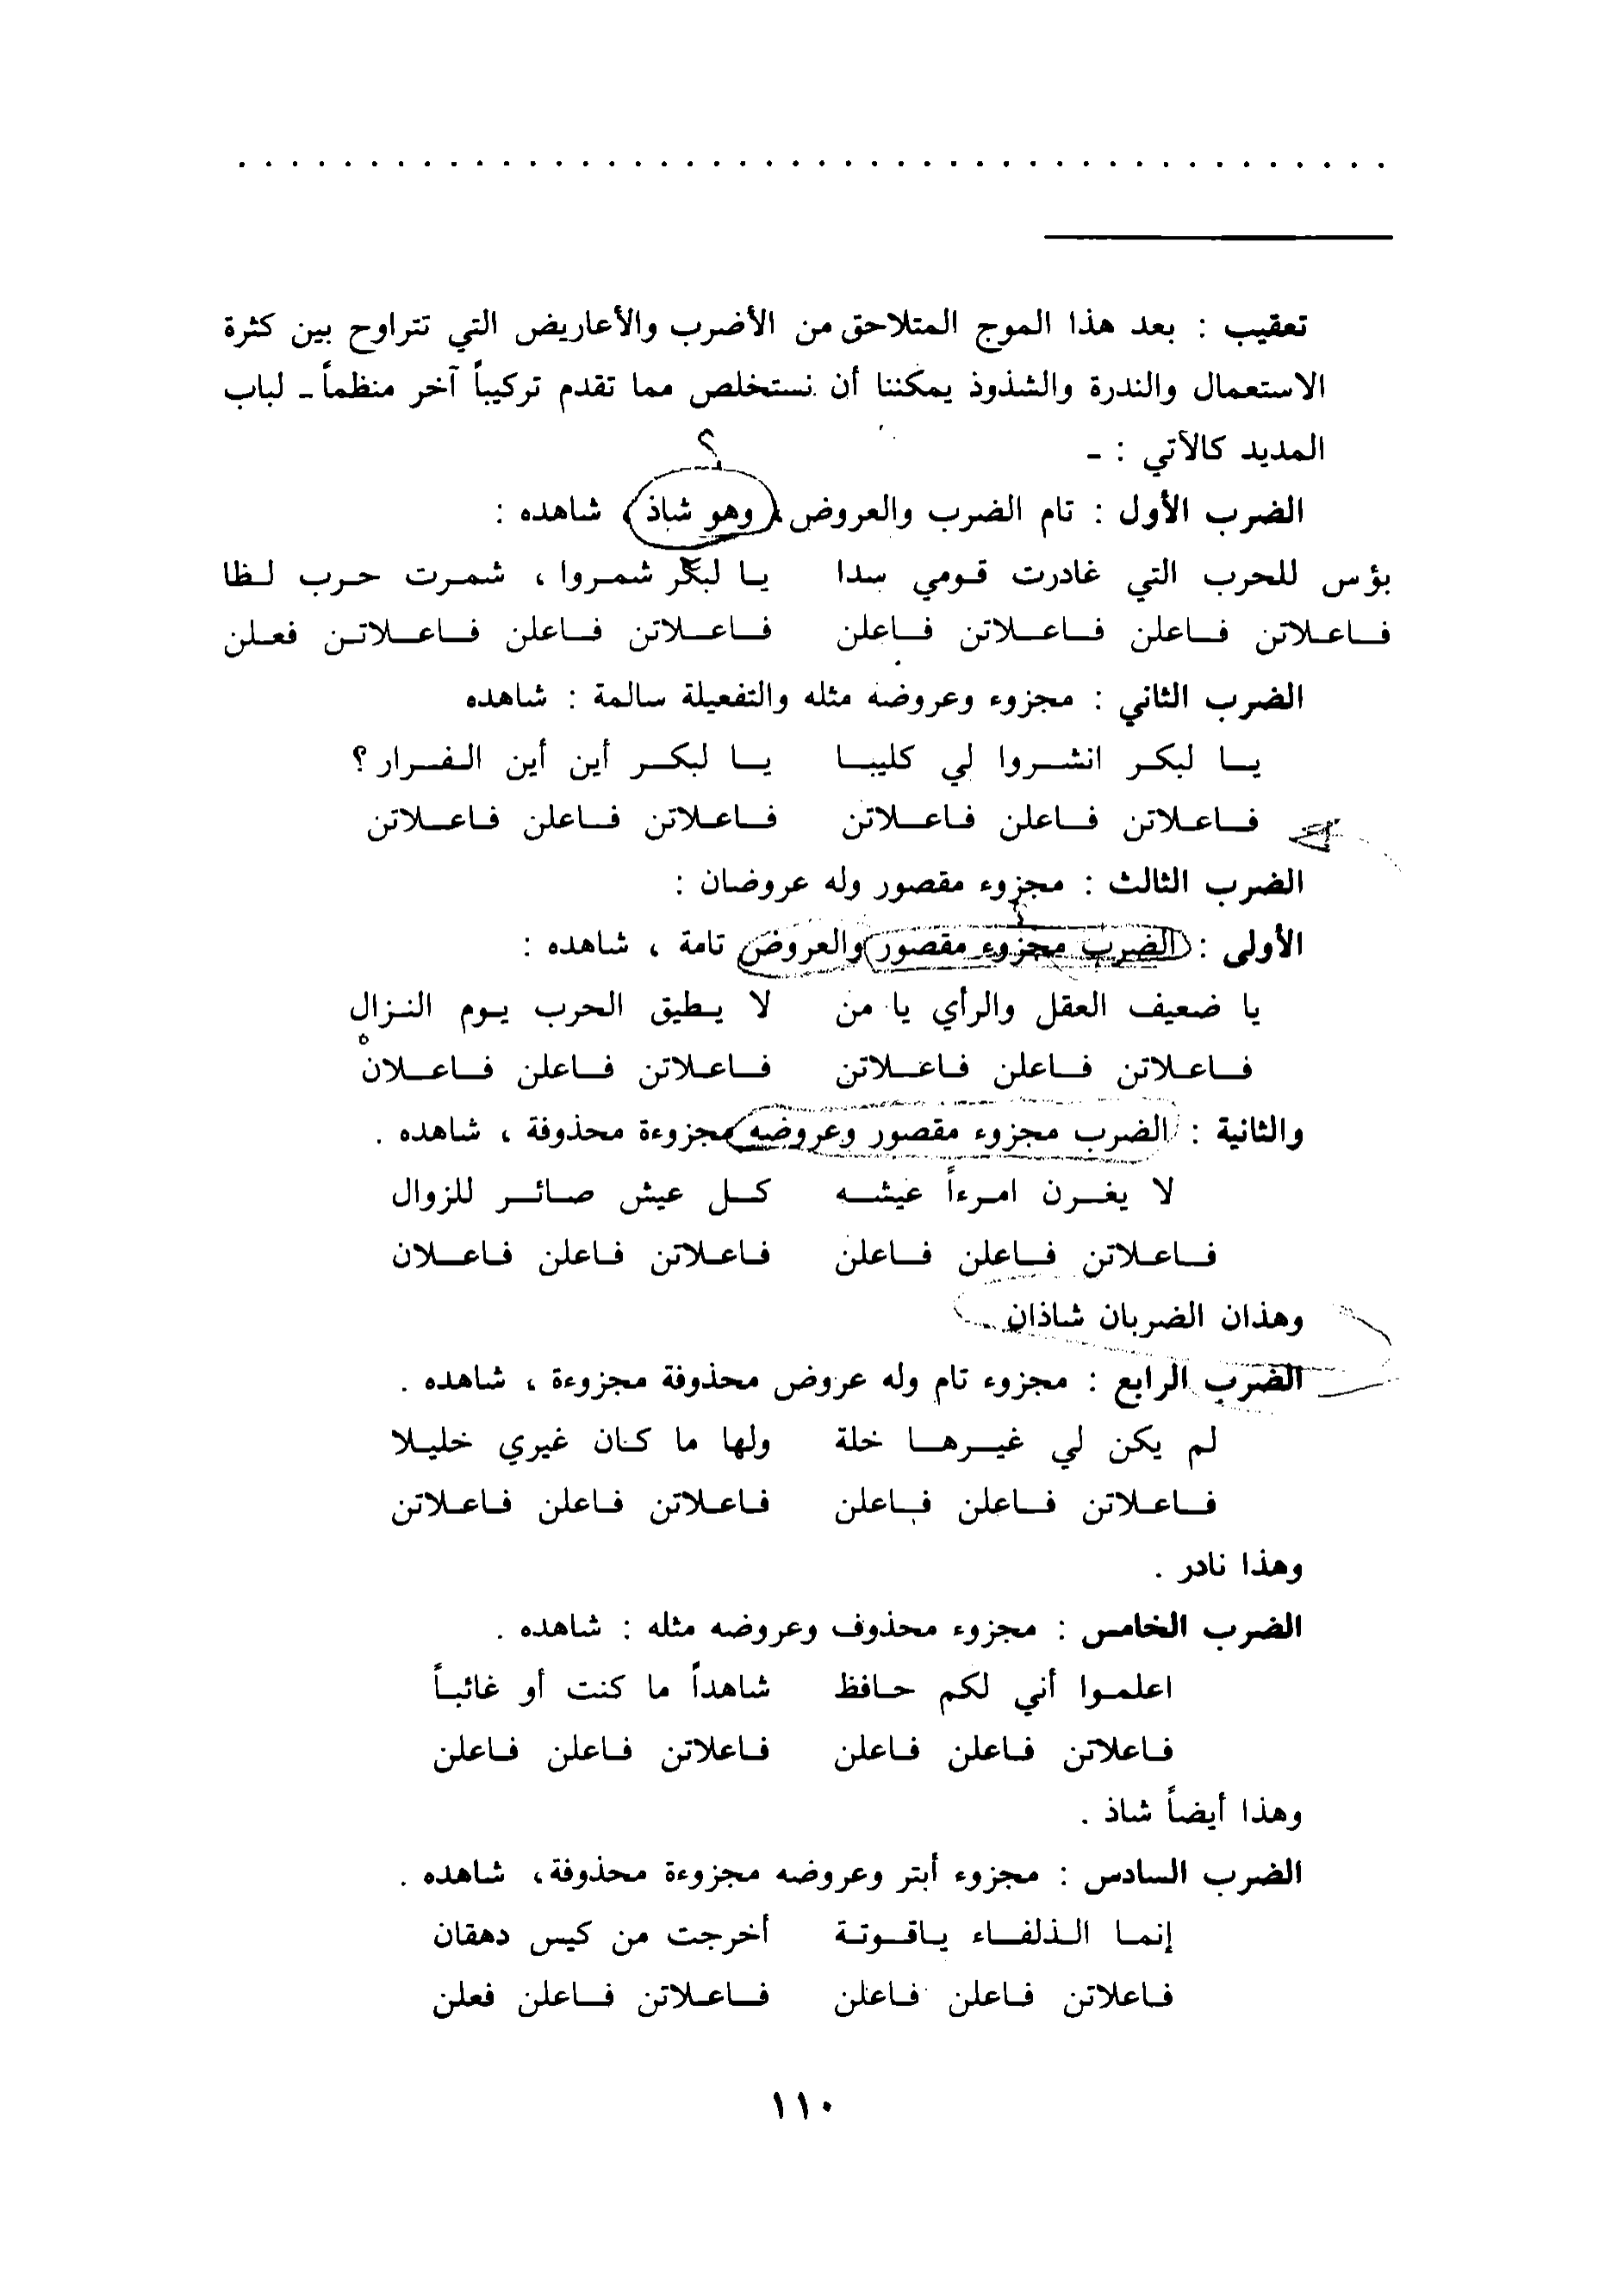 تعقيب : بعد هذا الموج المتلاحق من الأضرب والأعاريض التي تتراوح بين كثرة
الاستعمال والندرة والشذوذ يمكننا أن نستخلص مما تقدم تركيباً آخر منظماً ـ لباب
المديد كالآتي : ـ
؟
الضرب الأول : تام الضرب والعروض، وهو شاذ ، شاهده :
بؤس للحرب التي غادرت قومي سدا يا لبكر شمروا ، شمرت حرب لظا
فاعلاتن فاعلن فاعلاتن فاعلن فاعلاتن فاعلن فاعلاتن فعلن
الضرب الثاني : مجزوء وعروضه مثله والتفعيلة سالمة : شاهده
يا لبكر انشروا لي كليبا يا لبكر أين أين الفرار ؟
فاعلاتن فاعلن فاعلاتن فاعلاتن فاعلن فاعلاتن
الضرب الثالث : مجزوء مقصور وله عروضان :
الأولى : الضرب مجزوء مقصور والعروض تامة ، شاهده :
يا ضعيف العقل والرأي يا من لا يطيق الحرب يوم النزال
فاعلاتن فاعلن فاعلاتن فاعلاتن فاعلن فاعلانْ
والثانية : الضرب مجزوء مقصور وعروضه مجزوءة محذوفة ، شاهده .
لا يغرن امرءاً عيشه كل عيش صائر للزوال
فاعلاتن فاعلن فاعلن فاعلاتن فاعلن فاعلان
وهذان الضربان شاذان
الضرب الرابع : مجزوء تام وله عروض محذوفة مجزوءة ، شاهده .
لم يكن لي غيرها خلة ولها ما كان غيري خليلا
فاعلاتن فاعلن فاعلن فاعلاتن فاعلن فاعلاتن
وهذا نادر .
الضرب الخامس : مجزوء محذوف وعروضه مثله : شاهده .
اعلموا أني لكم حافظ شاهداً ما كنت أو غائباً
فاعلاتن فاعلن فاعلن فاعلاتن فاعلن فاعلن
وهذا أيضاً شاذ .
الضرب السادس : مجزوء أبتر وعروضه مجزوءة محذوفة، شاهده .
إنما الذلفاء ياقوتة أخرجت من كيس دهقان
فاعلاتن فاعلن فاعلن فاعلاتن فاعلن فعلن
١١٠